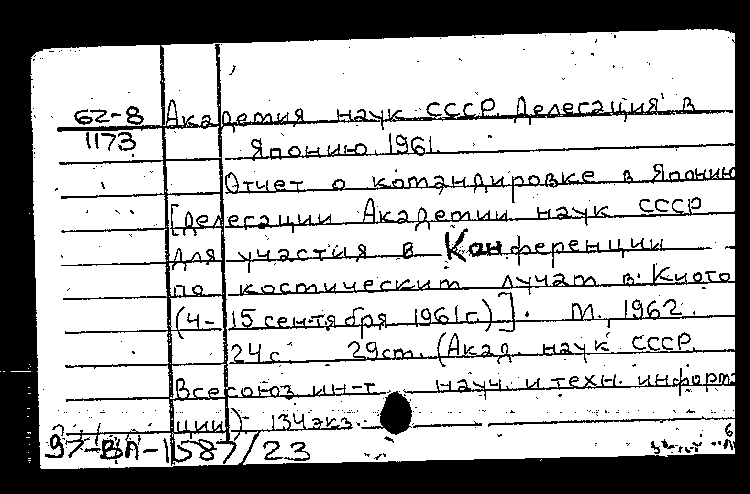 62-8 Академия наук СССР. Делегация в
1173 Японию. 1961.
Отчет о командировке в Японию
[делегации Академии наук СССР
для участия в Конференции
по космическим лучам в Киото
(4-15 сентября 1961 г.)]. М., 1962.
24 с. 29 см. (Акад. наук СССР.
Всесоюз. ин-т науч. и техн. информа
ции) 134 экз.
97-ВЛ-1587/23